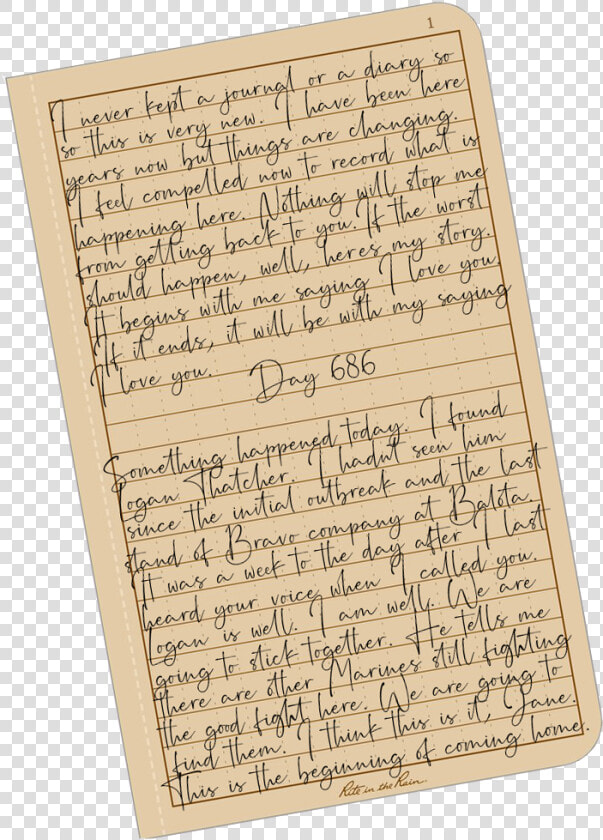 1
I never kept a journal or a diary so
so this is very new. I have been here
years now but things are changing.
I feel compelled now to record what is
happening here. Nothing will stop me
from getting back to you. If the worst
should happen, well, heres my story.
It begins with me saying I love you
If it ends, it will be with my saying
I love you.
Day 686
Something happened today. I found
Logan Thatcher. I hadnt seen him
since the initial outbreak and the last
stand of Bravo company at Balota.
It was a week to the day after I last
heard your voice when I called you.
Logan is well. I am well. We are
going to stick together. He tells me
there are other Marines still fighting
the good fight here. We are going to
find them. I think this is it, Jane.
This is the beginning of coming home.
Rite in the Rain